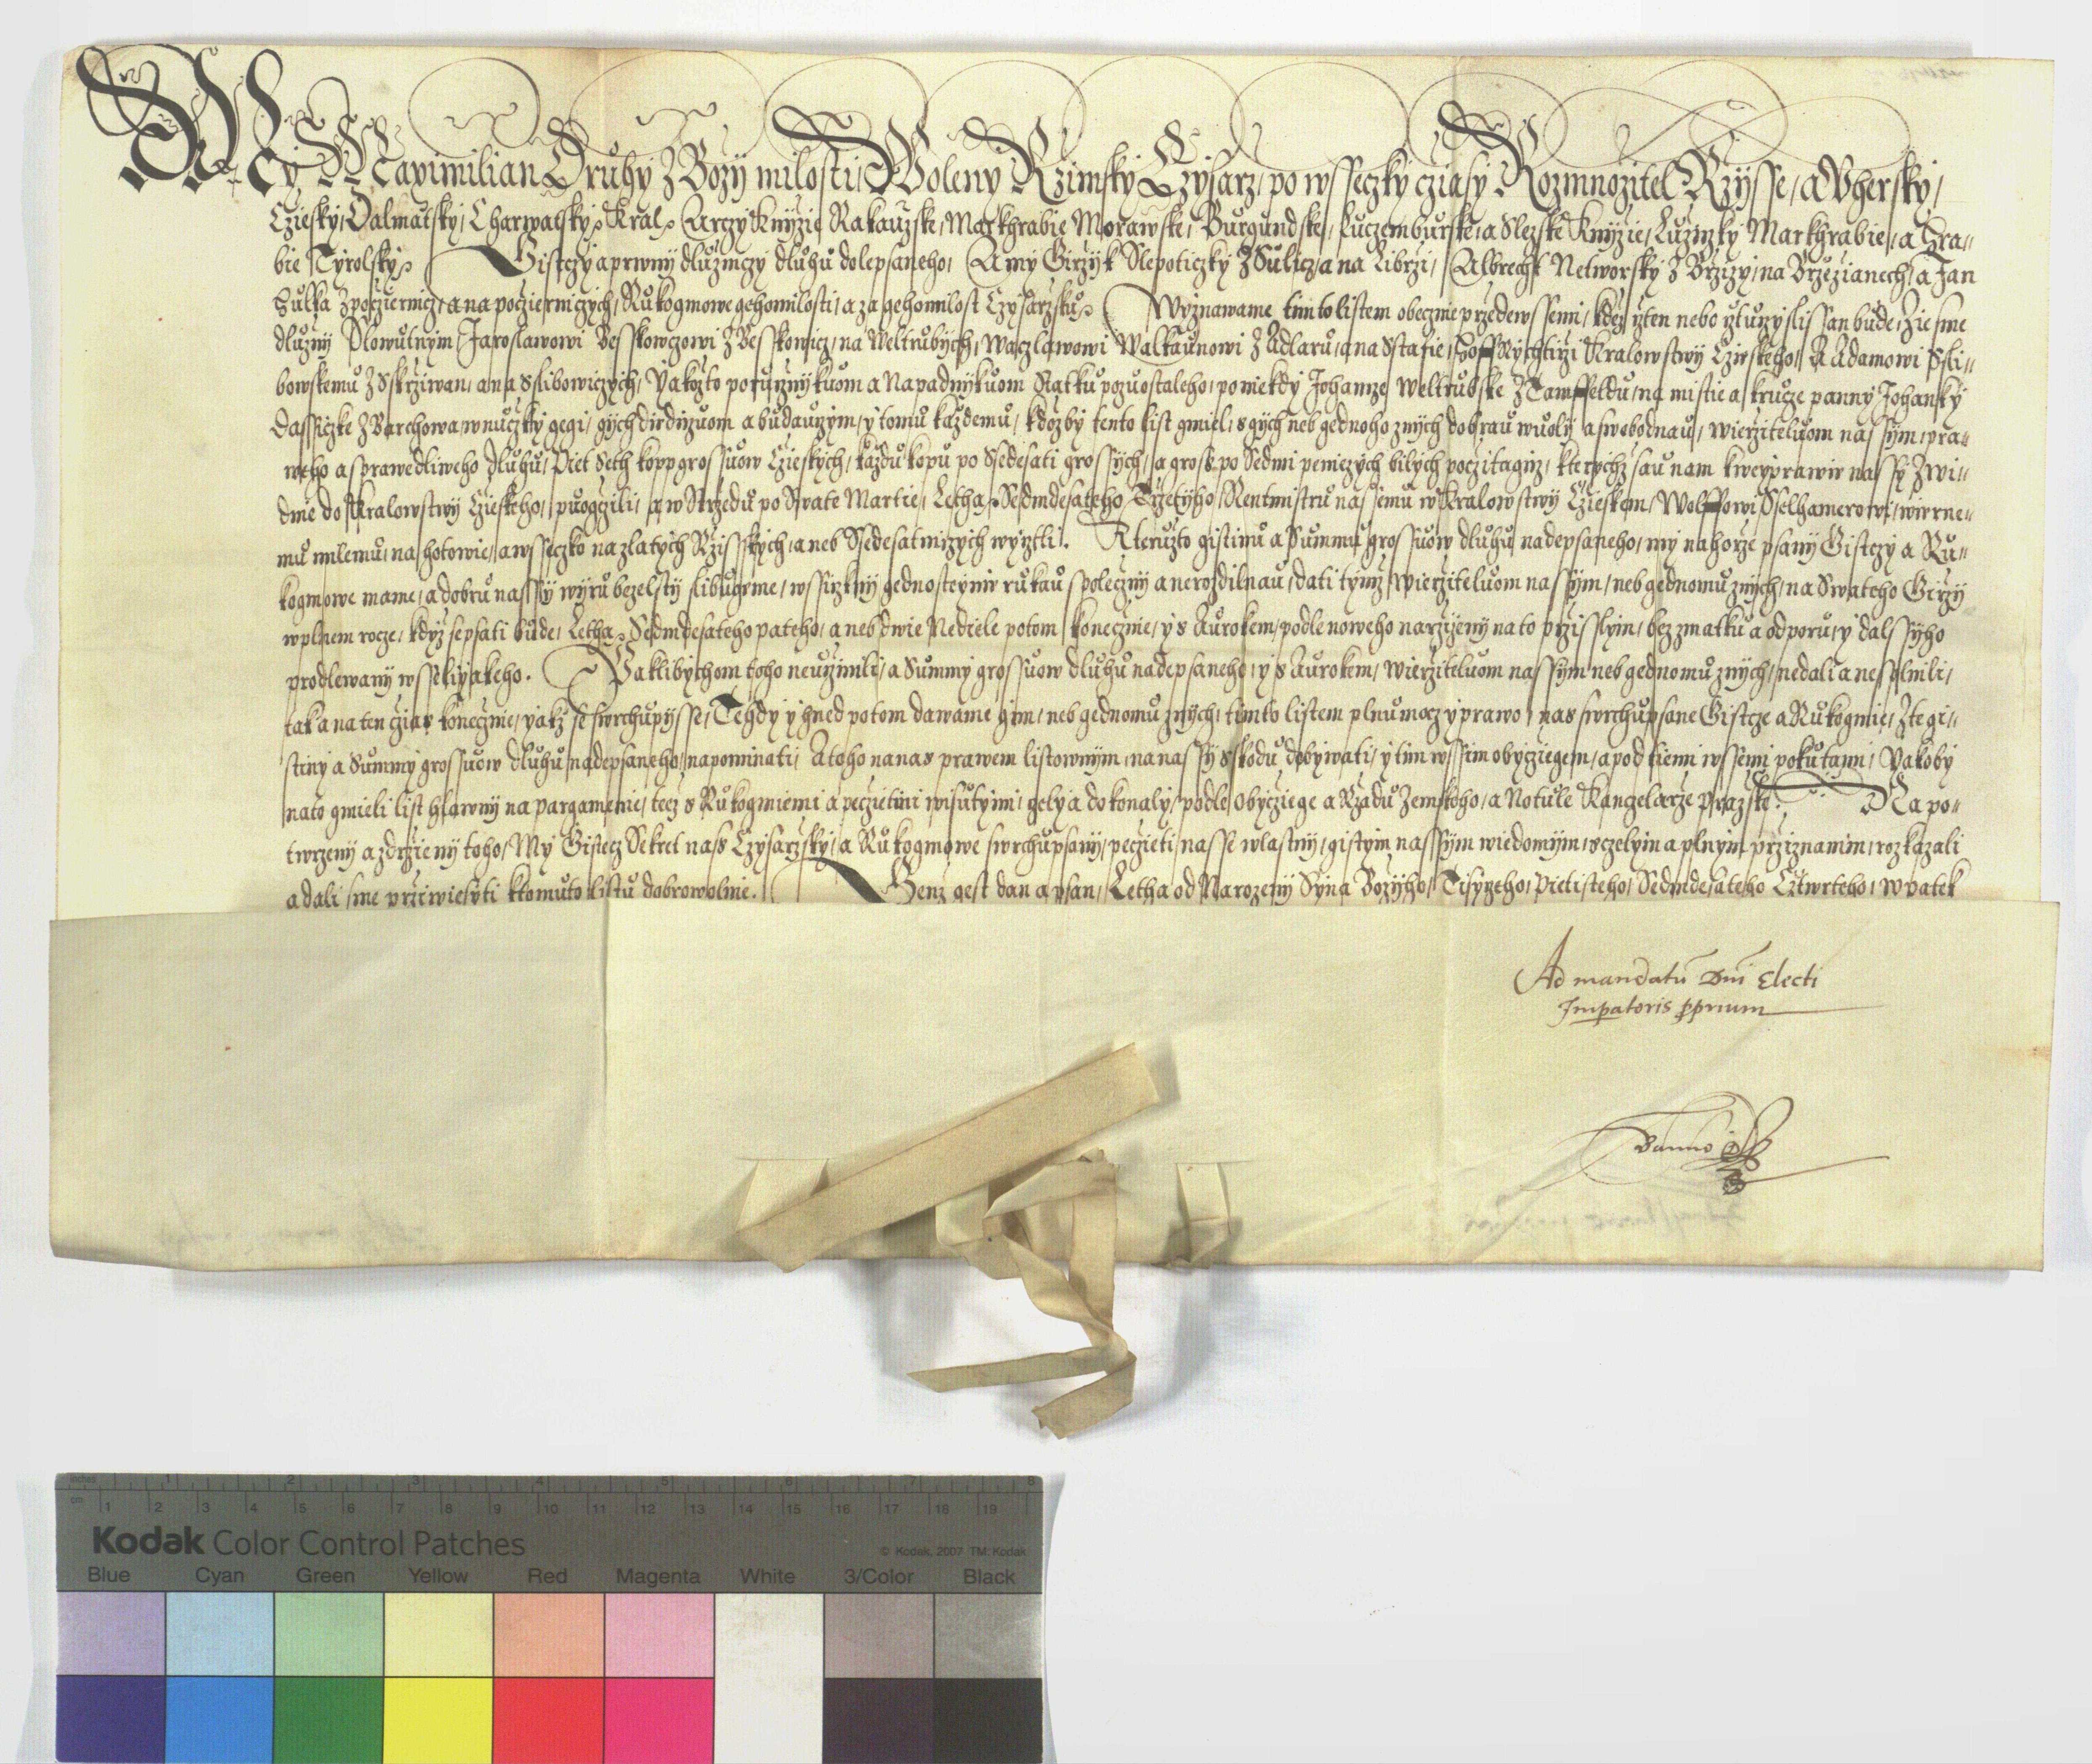 My Maximilian Druhy Z Bozy milosti, Woleny Rzimsky Czysarz, po wssečky cziasy Rozmnozitel Rzysse, a Vhersky,
Czesky, Dalmatsky, Charwatsky Kral Arczy Knÿzie Rakauzske, Markhrabie Morawske, Burgundske, Luczemburske, a Slezske Knÿzie, Luzyczky Markhrabie, a Hra-
bie Tyrolsky Gistczy a prwny dluznczy dluhu dolepsaneho, A my Girzyk Slepoticzky Z Sulicz, a na Librzi, Albrecht Networsky Z Brzizy, na Brzezianech, a Jan
z pocziernicz, a na pocziernicych, Rukogmowe geho milosti, a za geho milost Czysarzsku Wyznawame timto listem obecznie przedewssemi, kdez ÿten nebo cztuczy slissan bude, Zie sme
dluzny Slowutnym Jaroslawowi Besskowczowi Z Besskowicz, na Weltrubych, Waczlawowi Walkaunowi Z Adlaru, a na Kralowstwy Czeskeho, A Adamowi Sli-
bowskemu Z Skrziwan, a na Slibowiczych, Yakozto porucznykuom a Napadnykuom Statku pozuostaleho, po niekdy Johance Weltrubske Z na mistie a k rucze panny Johanky
Dassiczke Z Barchowa, wnuczky gegi, gych diedizuom a buducym, y tomu kazdemu, kdozby tento list gmiel, s gych neb gednoho z nych dobrau wuoly a swobodnau, Wierziteluom nassym, pra-
weho a sprawedliweho Dluhu, Piet Seth kopp grossuow Czeskych, kazdu kopu po Ssedesati grossych, a gross po Sedmi penieczych bilych pocztagicz, kterychz sau nam k wyprawie nassy Z Wi-
dnie do Kralowstwy Czeskeho, puogczili, a w Strzedu po Swate Martie, Letha Sedmdesateho Trzetyho, Rentmistru nassemu w Kralowstwy Czeskem, Wolffowi Sselhamerowi, wiernie-
mu milemu, na hotowie, a wssecko na zlatych Rzisskych, a neb Ssedesatniczych wycztli. Kteruzto gistinu a Summu grossuow dluhu nadepsaneho, my nahorze psany Gistczy a Ru-
kogmowe mame, a dobru nassy wyru beze lsty slibugeme, wssickny gednosteynie rukau spoleczny a nerozdilnau, dati tymz Wierziteluom nassym, neb gednomu z nych, na Swateho Girzy
w plnem rocze, kdyz se psati bude, Letha Sedmdesateho pateho, a neb dwie Nediele potom konecznie, y s Aurokem, podle noweho narzyzeny na to przisslym, bez zmatku a odporu, y dalssyho
prodlewany wsseliyakeho. Paklibychom toho neuczinili, a Summy grossuow dluhu nadepsaneho, y s Aurokem, Wierziteluom nassym neb gednomu z nych, nedali a nesplnili,
tak a na ten czias konecznie, yakz se swrchu pysse, Tehdy y hned potom dawame gim, neb gednomu z nych, timto listem plnu mocz y prawo, nas swrchupsane Gistcze a Rukogmie, Z te gi-
stiny a Summy grossuow dluhu nadepsaneho, napominati, A toho na nas prawem listownym, na nassy sskodu dobywati, y tim wssim obycziegem, a pod tiemi wssemi pokutami, Yakoby
na to gmieli list hlawny na pargamenie, teez s Rukogmiemi a peczietmi wisutymi, gely a dokonaly, podle obycziege a Rzadu Zemskeho, a Notule Kanczelarze Prazske. Na po-
twrzeny a zdrzieny toho, My Gistecz Sekret nass Czysarzsky, a Rukogmowe swrchupsany, peczieti nasse wlastny, gistym nassym wiedomym, s czelym a plnym przyznanim, rozkazali
a dali sme prziwiesyti k tomuto listu dobrowolnie. Genz gest dan a psan, Letha od Narozeny Syna Bozyho, Tisyczeho, Pietisteho, Sedmdesateho Cztwrteho, w patek
Ad mandatū Dnī Electi
Impatoris ppriūm
Kodak Color Control Patches
© Kodak, 2007 TM: Kodak
inches 1 2 3 4 5 6 7 8
cm 1 2 3 4 5 6 7 8 9 10 11 12 13 14 15 16 17 18 19
Blue Cyan Green Yellow Red Magenta White 3/Color Black